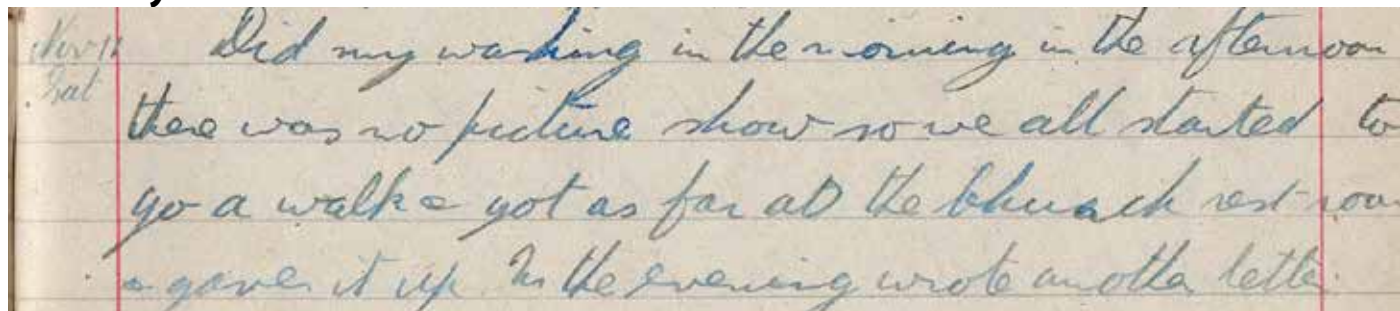 Nov 11 Did my washing in the morning in the afternoon
Sat there was no picture show so we all started to
go a walk & got as far as the Church rest room
& gave it up. In the evening wrote another letter.